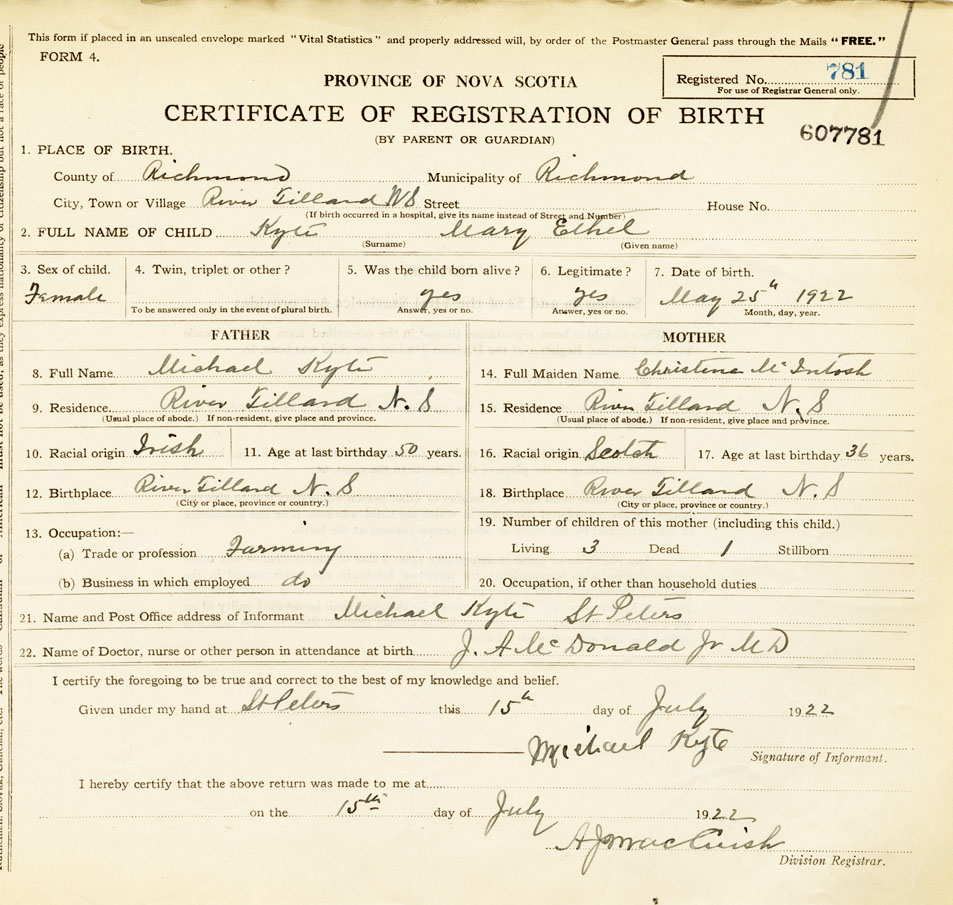 This form if placed in an unsealed envelope marked "Vital Statistics" and properly addressed will, by order of the Postmaster General pass through the Mails "FREE."
FORM 4.
Registered No. 781
For use of Registrar General only.
PROVINCE OF NOVA SCOTIA
CERTIFICATE OF REGISTRATION OF BIRTH
607781
(BY PARENT OR GUARDIAN)
1. PLACE OF BIRTH.
County of Richmond Municipality of Richmond
City, Town or Village River Tillard NS Street House No.
(If birth occurred in a hospital, give its name instead of Street and Number)
2. FULL NAME OF CHILD Kyte Mary Ethel
(Surname) (Given name)
3. Sex of child. 4. Twin, triplet or other? 5. Was the child born alive? 6. Legitimate? 7. Date of birth.
Female yes yes May 25th 1922
To be answered only in the event of plural birth. Answer, yes or no. Answer, yes or no. Month, day, year.
FATHER MOTHER
8. Full Name Michael Kyte 14. Full Maiden Name Christena Mc Intosh
9. Residence River Tillard N. S 15. Residence River Tillard N. S
(Usual place of abode.) If non-resident, give place and province. (Usual place of abode.) If non-resident, give place and province.
10. Racial origin Irish 11. Age at last birthday 50 years. 16. Racial origin Scotch 17. Age at last birthday 36 years.
12. Birthplace River Tillard N. S 18. Birthplace River Tillard N. S
(City or place, province or country.) (City or place, province or country.)
13. Occupation:— 19. Number of children of this mother (including this child.)
(a) Trade or profession Farming Living 3 Dead 1 Stillborn
(b) Business in which employed do 20. Occupation, if other than household duties
21. Name and Post Office address of Informant Michael Kyte St Peters
22. Name of Doctor, nurse or other person in attendance at birth J. A Mc Donald Jr M D
I certify the foregoing to be true and correct to the best of my knowledge and belief.
Given under my hand at St Peters this 15th day of July 1922
Michael Kyte
Signature of Informant.
I hereby certify that the above return was made to me at
on the 15th day of July 1922
A J MacCuish
Division Registrar.